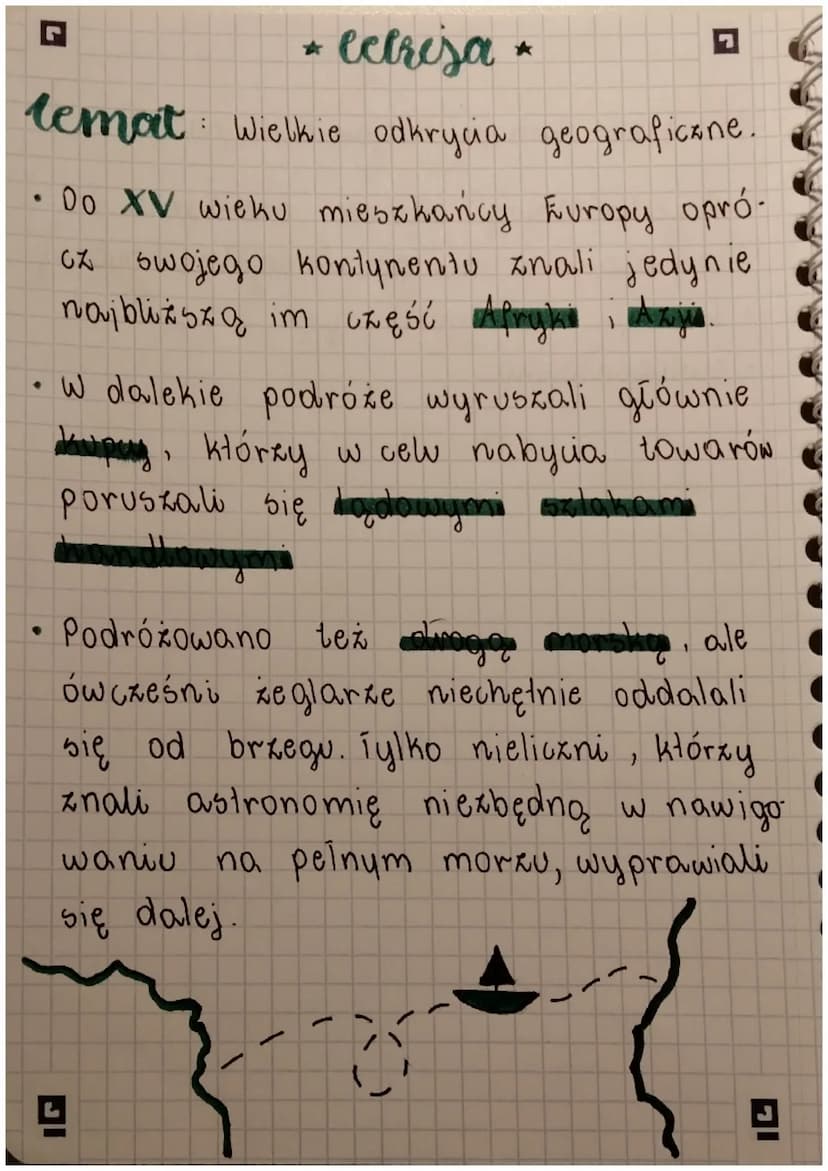 Lekcja
Temat: Wielkie odkrycia geograficzne.
• Do XV wieku mieszkańcy Europy opró-
cz swojego kontynentu znali jedynie
najbliższą im część Afryki i Azji.
• W dalekie podróże wyruszali głównie
kupcy, którzy w celu nabycia towarów
poruszali się lądowymi szlakami
handlowymi
• Podróżowano też drogą morską, ale
ówcześni żeglarze niechętnie oddalali
się od brzegu. Tylko nieliczni, którzy
znali astronomię niezbędną w nawigo-
waniu na pełnym morzu, wyprawiali
się dalej.